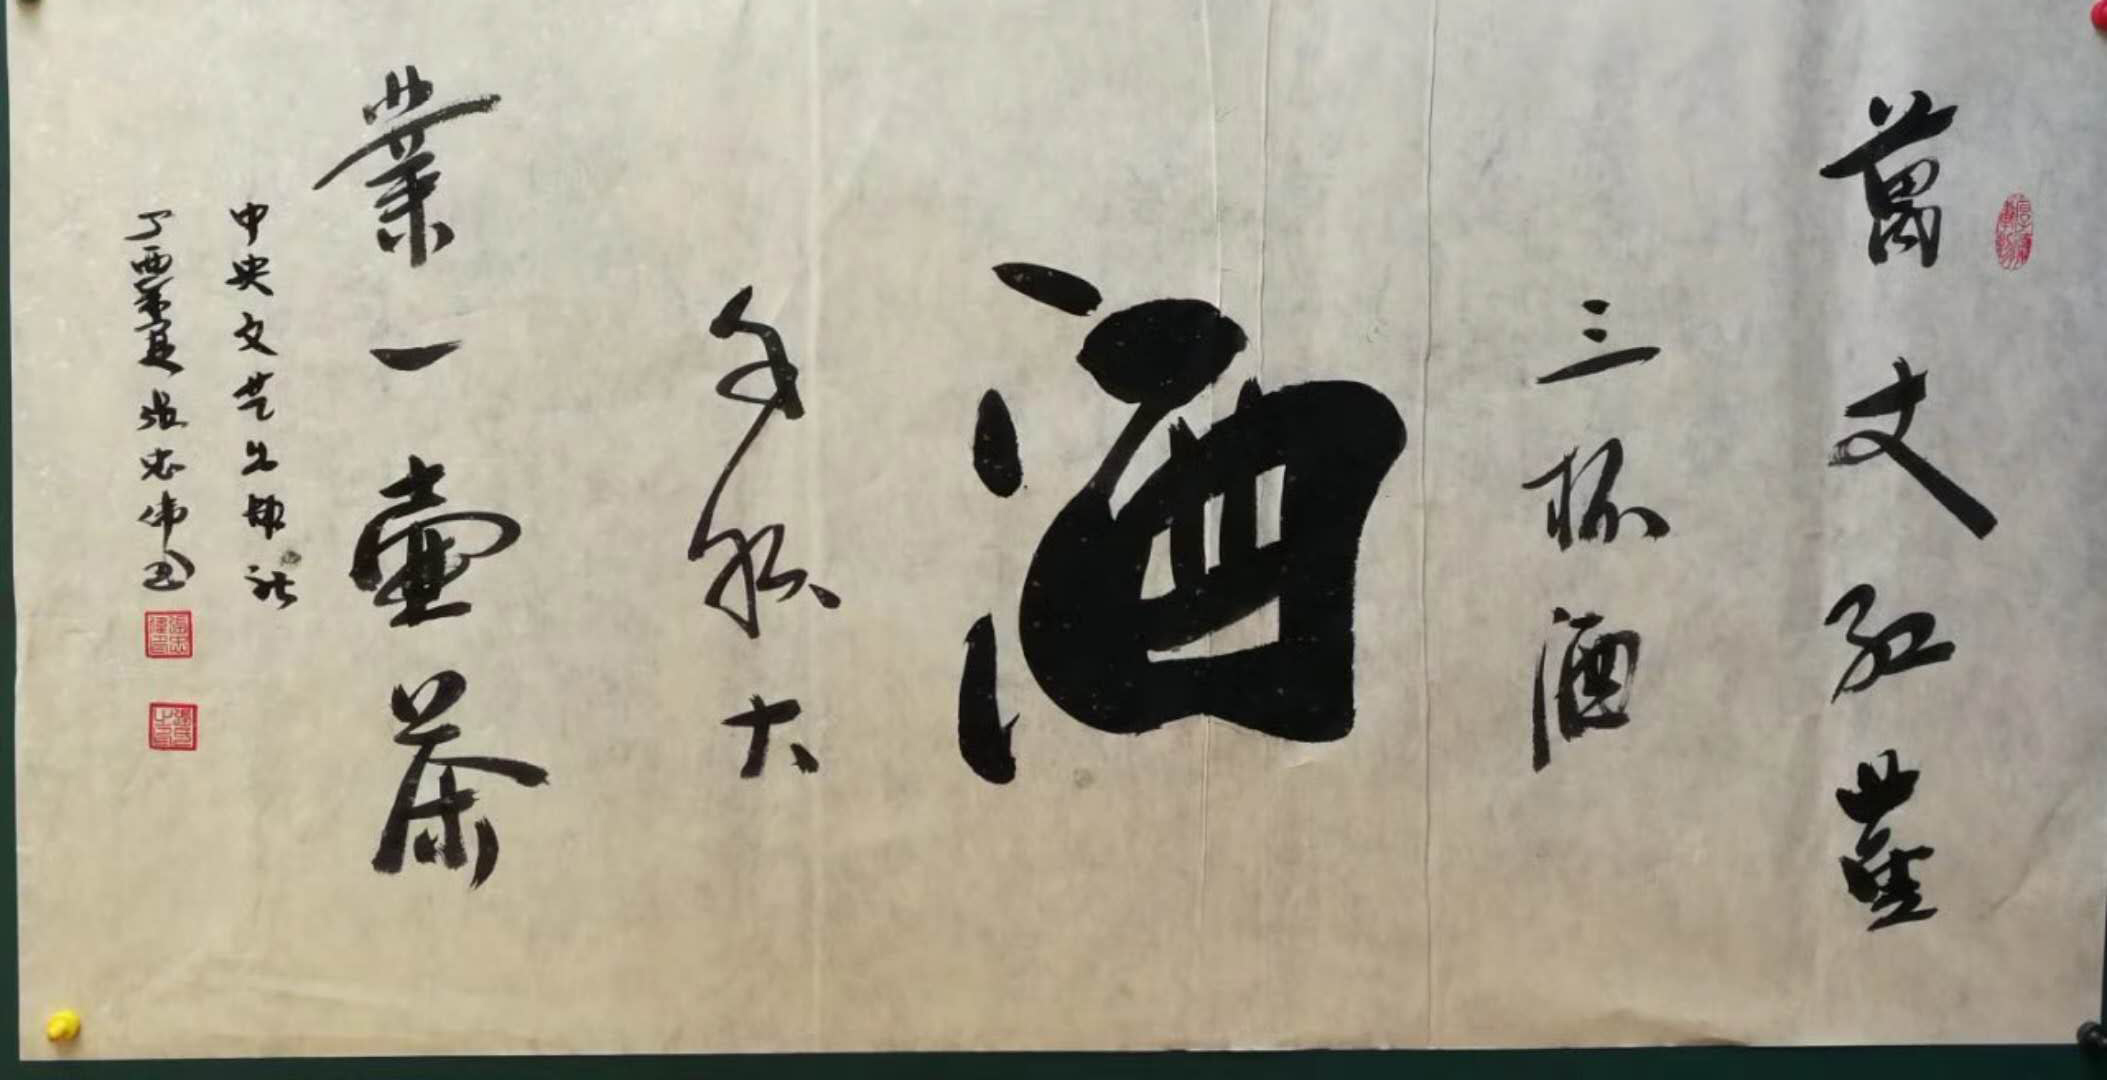 萬丈紅塵
三杯酒
酒
千秋大
業一壺茶
中央文艺出版社
丁酉夏 张忠伟书